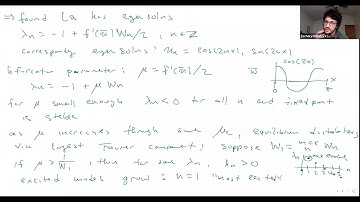 ⇒ found La has eigensolns
λn = -1 + f'(ū) Wn/2, n∈Z
corresponding eigensolns: un = cos(2nx), sin(2nx)
bifurcation parameter: μ = f'(ū)/2
λn = -1 + μ Wn
cos(2x)
for μ small enough λn<0 for all n and fixed point
is stable
as μ increases through some μc, equilibrium destabilizes
via largest Fourier component: suppose W1 = max Wn
if μ > 1/W1, then for some n, λn > 0
excited modes grow: n=1 "most excitable"
1 2 3 4 5